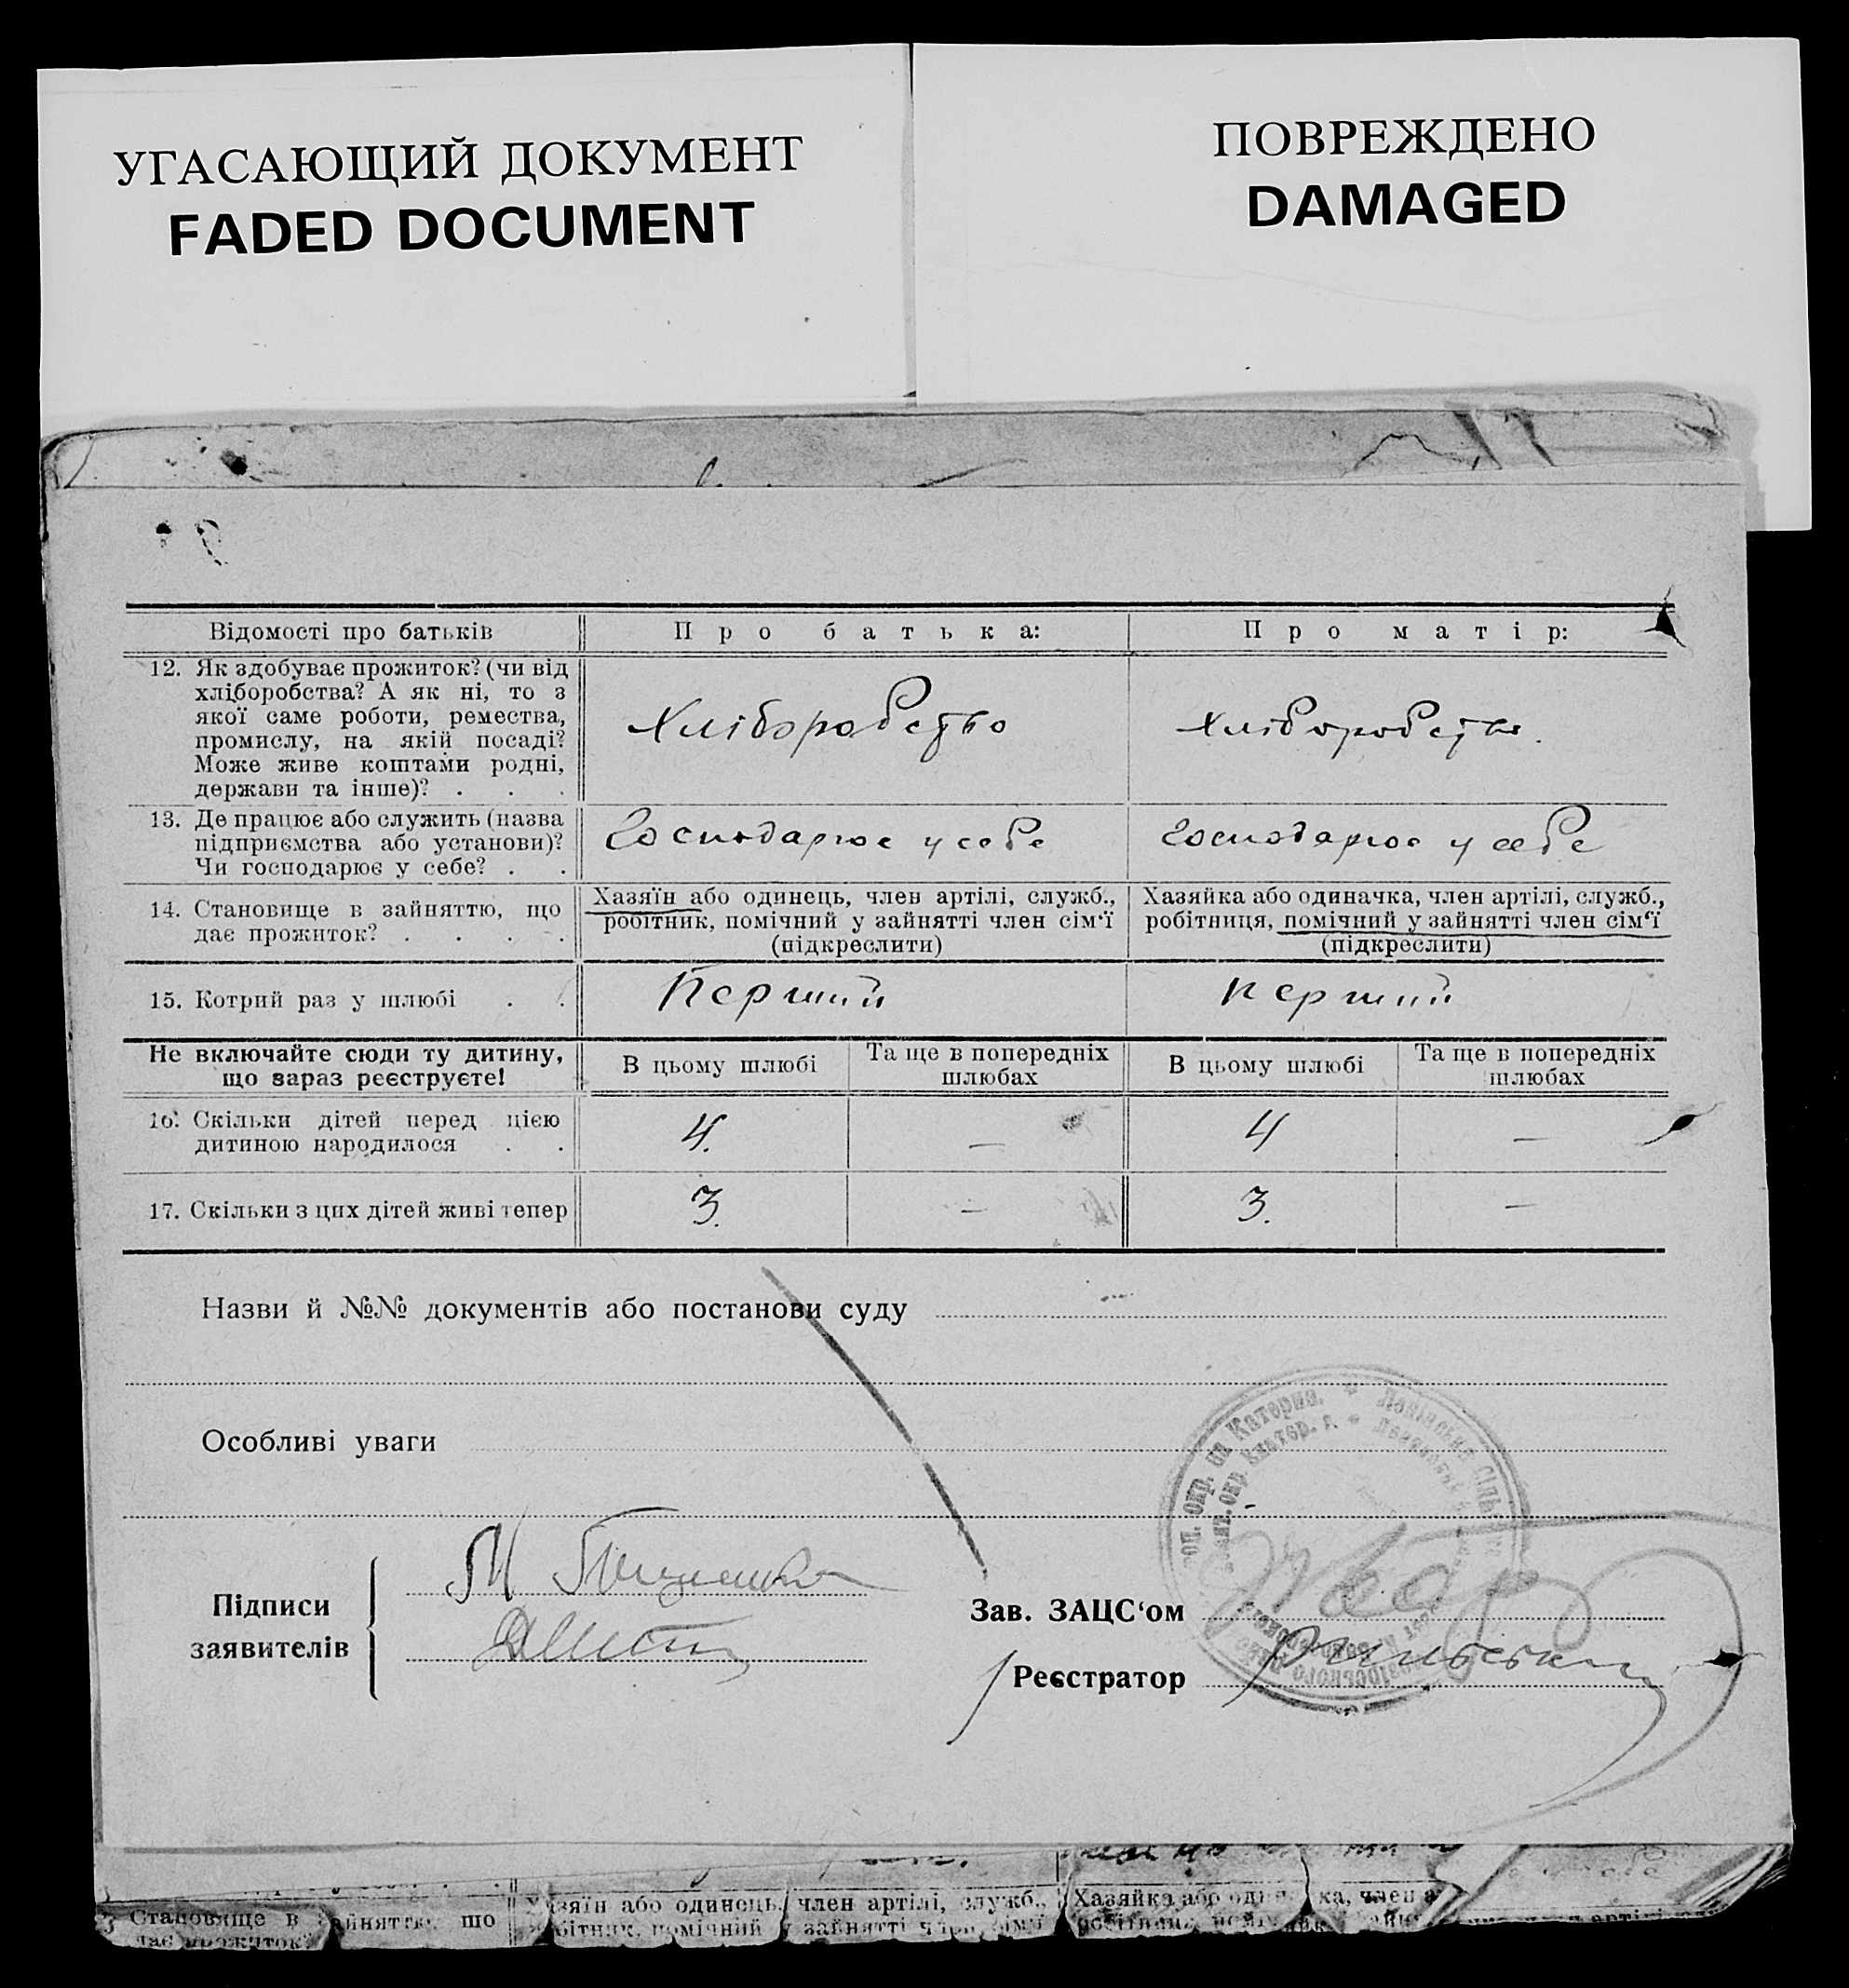 УГАСАЮЩИЙ ДОКУМЕНТ
FADED DOCUMENT
ПОВРЕЖДЕНО
DAMAGED
Відомості про батьків
Про батька:
Про матір:
12. Як здобуває прожиток? (чи від
хліборобства? А як ні, то з
якої саме роботи, ремества,
промислу, на якій посаді?
Може живе коштами родні,
держави та інше)? . . .
Хліборобство
Хліборобство.
13. Де працює або служить (назва
підприємства або установи)?
Чи господарює у себе? . .
Господарює у себе
Господарює у себе
14. Становище в зайняттю, що
дає прожиток? . . . .
Хазяїн або одинець, член артілі, служб.,
робітник, помічний у зайнятті член сім‘ї
(підкреслити)
Хазяйка або одиначка, член артілі, служб.,
робітниця, помічний у зайнятті член сім‘ї
(підкреслити)
15. Котрий раз у шлюбі . .
Перший
Перший
Не включайте сюди ту дитину,
що зараз реєструєте!
В цьому шлюбі
Та ще в попередніх
шлюбах
В цьому шлюбі
Та ще в попередніх
шлюбах
16. Скільки дітей перед цією
дитиною народилося . .
4.
—
4
—
17. Скільки з цих дітей живі тепер
3.
—
3.
—
Назви й №№ документів або постанови суду
Особливі уваги
Підписи
заявителів
Зав. ЗАЦС‘ом
Реєстратор
окр. на Катерин.
окр. Екатер. г.
Становище в зайняттю, що
дає прожиток?
Хазяїн або одинець, член артілі, служб.,
робітник, помічний у зайнятті член сім‘ї
Хазяйка або